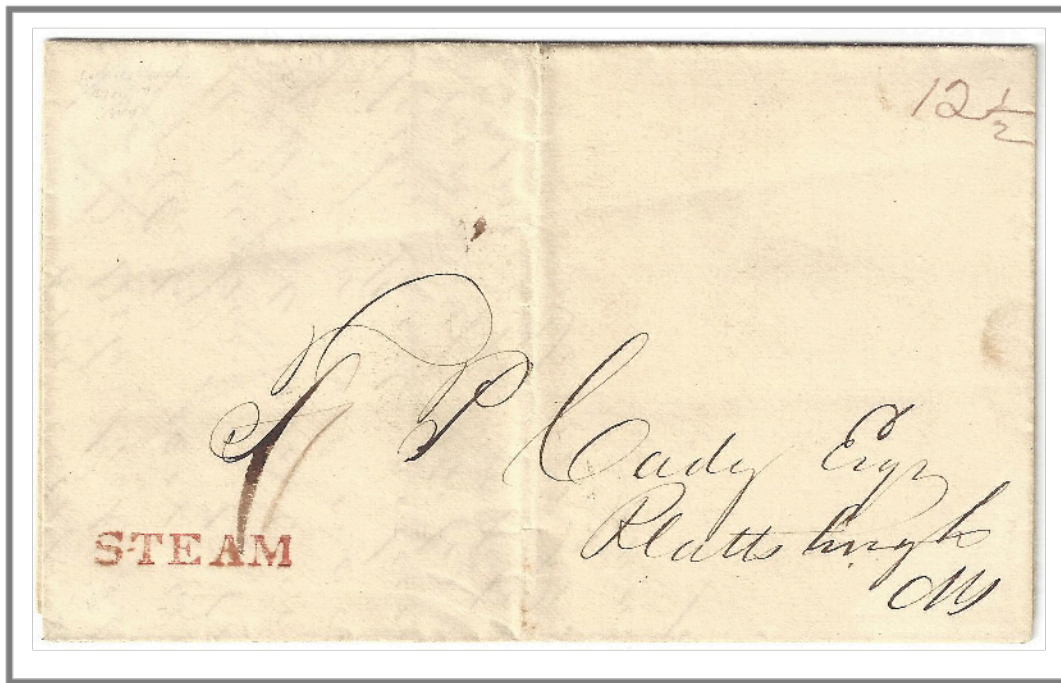 12 1/2
F P Cady Esqr
Plattsburgh
NY
STEAM